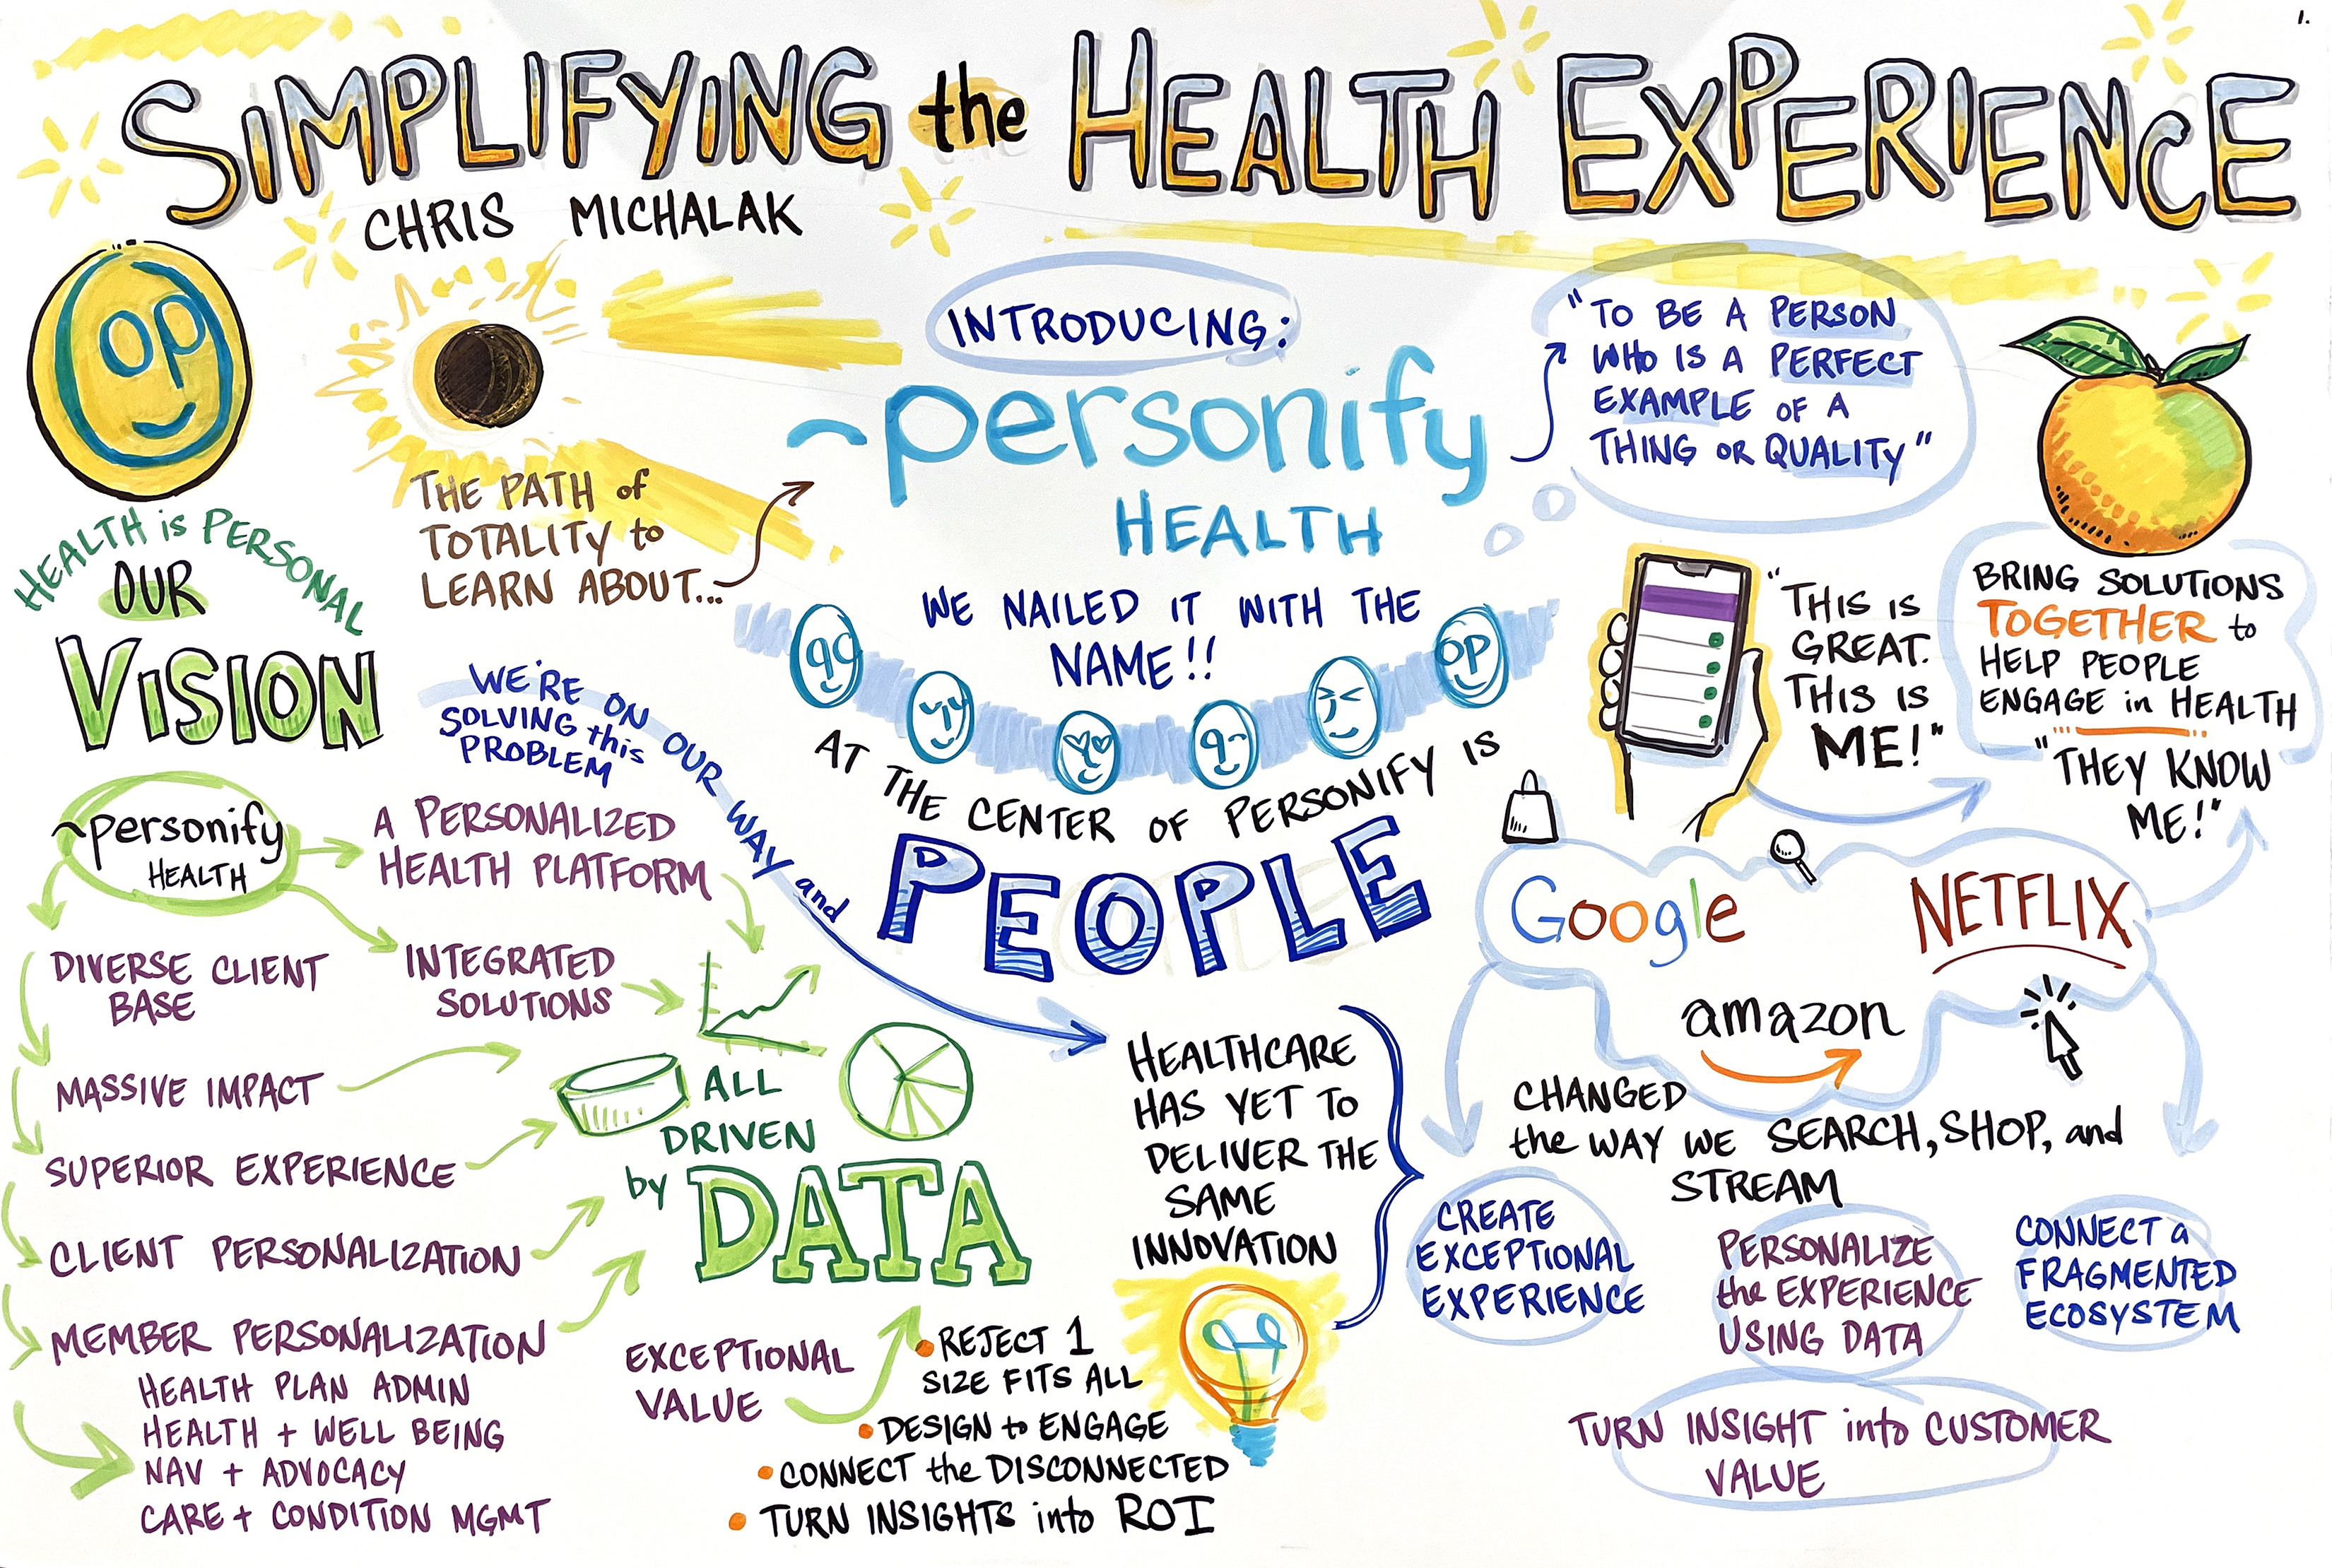 1.
SIMPLIFYING the HEALTH EXPERIENCE
CHRIS MICHALAK
op
HEALTH is PERSONAL
OUR
VISION
THE PATH of
TOTALITY to
LEARN ABOUT...
INTRODUCING:
~personify
HEALTH
"TO BE A PERSON
WHO IS A PERFECT
EXAMPLE OF A
THING OR QUALITY"
WE NAILED IT WITH THE
NAME!!
op
AT THE CENTER OF PERSONIFY IS
PEOPLE
"THIS IS
GREAT.
THIS IS
ME!"
BRING SOLUTIONS
TOGETHER to
HELP PEOPLE
ENGAGE in HEALTH
"THEY KNOW
ME!"
WE'RE ON OUR WAY and
SOLVING this
PROBLEM
~personify
HEALTH
A PERSONALIZED
HEALTH PLATFORM
DIVERSE CLIENT
BASE
INTEGRATED
SOLUTIONS
MASSIVE IMPACT
SUPERIOR EXPERIENCE
CLIENT PERSONALIZATION
MEMBER PERSONALIZATION
HEALTH PLAN ADMIN
HEALTH + WELL BEING
NAV + ADVOCACY
CARE + CONDITION MGMT
ALL
DRIVEN
by DATA
EXCEPTIONAL
VALUE
REJECT 1
SIZE FITS ALL
DESIGN to ENGAGE
CONNECT the DISCONNECTED
TURN INSIGHTS into ROI
HEALTHCARE
HAS YET TO
DELIVER THE
SAME
INNOVATION
Google
NETFLIX
amazon
CHANGED
the WAY WE SEARCH, SHOP, and
STREAM
CREATE
EXCEPTIONAL
EXPERIENCE
PERSONALIZE
the EXPERIENCE
USING DATA
CONNECT a
FRAGMENTED
ECOSYSTEM
TURN INSIGHT into CUSTOMER
VALUE